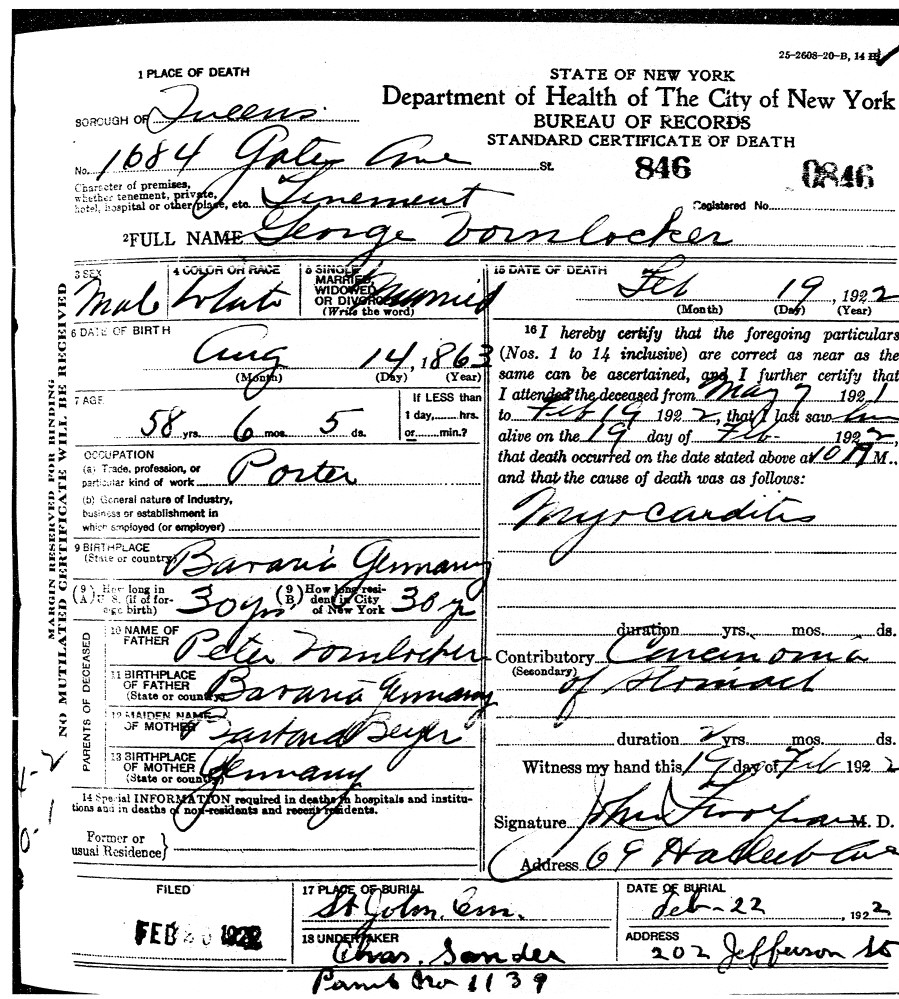 25-2608-20-B, 14
1 PLACE OF DEATH
STATE OF NEW YORK
Department of Health of The City of New York
BUREAU OF RECORDS
STANDARD CERTIFICATE OF DEATH
BOROUGH OF Queens
No. 1684 Gates Ave St.
846 0846
Character of premises,
whether tenement, private,
hotel, hospital or other place, etc. Tenement
Registered No.
2 FULL NAME George Vornlocker
MARGIN RESERVED FOR BINDING
NO MUTILATED CERTIFICATE WILL BE RECEIVED
3 SEX
Male
4 COLOR OR RACE
White
5 SINGLE,
MARRIED,
WIDOWED
OR DIVORCED
(Write the word)
Married
6 DATE OF BIRTH
Aug 14, 1863
(Month) (Day) (Year)
7 AGE
58 yrs. 6 mos. 5 ds.
If LESS than
1 day, hrs.
or min.?
OCCUPATION
(a) Trade, profession, or
particular kind of work Porter
(b) General nature of Industry,
business or establishment in
which employed (or employer)
9 BIRTHPLACE
(State or country) Bavaria Germany
(9 A) How long in
U. S. (if of for-
eign birth) 30 yrs.
(9 B) How long resi-
dent in City
of New York 30 yr
PARENTS OF DECEASED
10 NAME OF
FATHER Peter Vornlocker
11 BIRTHPLACE
OF FATHER
(State or country) Bavaria Germany
12 MAIDEN NAME
OF MOTHER Barbara Beyer
13 BIRTHPLACE
OF MOTHER
(State or country) Germany
14 Special INFORMATION required in deaths in hospitals and institu-
tions and in deaths of non-residents and recent residents.
Former or
usual Residence
15 DATE OF DEATH
Feb 19, 1922
(Month) (Day) (Year)
16 I hereby certify that the foregoing particulars
(Nos. 1 to 14 inclusive) are correct as near as the
same can be ascertained, and I further certify that
I attended the deceased from May 7 1921
to Feb 19 1922, that I last saw him
alive on the 19 day of Feb 1922,
that death occurred on the date stated above at 10 A M.,
and that the cause of death was as follows:
Myocarditis
duration yrs. mos. ds.
Contributory Carcinoma
(Secondary) of Stomach
duration 2 yrs. mos. ds.
Witness my hand this 19 day of Feb 1922
Signature John M. D.
Address 69 Ave
FILED
FEB 20 1922
17 PLACE OF BURIAL
St John Cem.
DATE OF BURIAL
Feb-22, 1922
18 UNDERTAKER
Chas. Sander
ADDRESS
202 Jefferson St
Permit No 1139